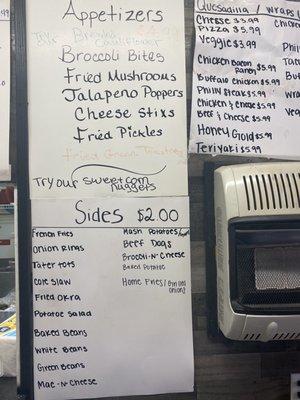 Appetizers
$4.99
Try our Breaded
Cauliflower
Broccoli Bites
Fried Mushrooms
Jalapeno Poppers
Cheese Stixs
Fried Pickles
Fried Green Tomatoes
Try our sweetcorn
nuggets
Sides $2.00
French Fries
Onion Rings
Tater tots
Cole Slaw
Fried Okra
Potatoe Salad
Baked Beans
White Beans
Green Beans
Mac-N-Cheese
Mash Potatoes/
Beef Dogs
Brocoli-N-Cheese
Baked Potatoe
Home Fries/
onions
Quesadilla / Wraps
Cheese $3.99
Pizza $5.99
Veggie $3.99
Chicken Bacon
Ranch $5.99
Buffalo Chicken $5.99
Philly Steak $5.99
Chicken & Cheese $5.99
Beef & Cheese $5.99
Honey Gold $5.99
Teriyaki $5.99